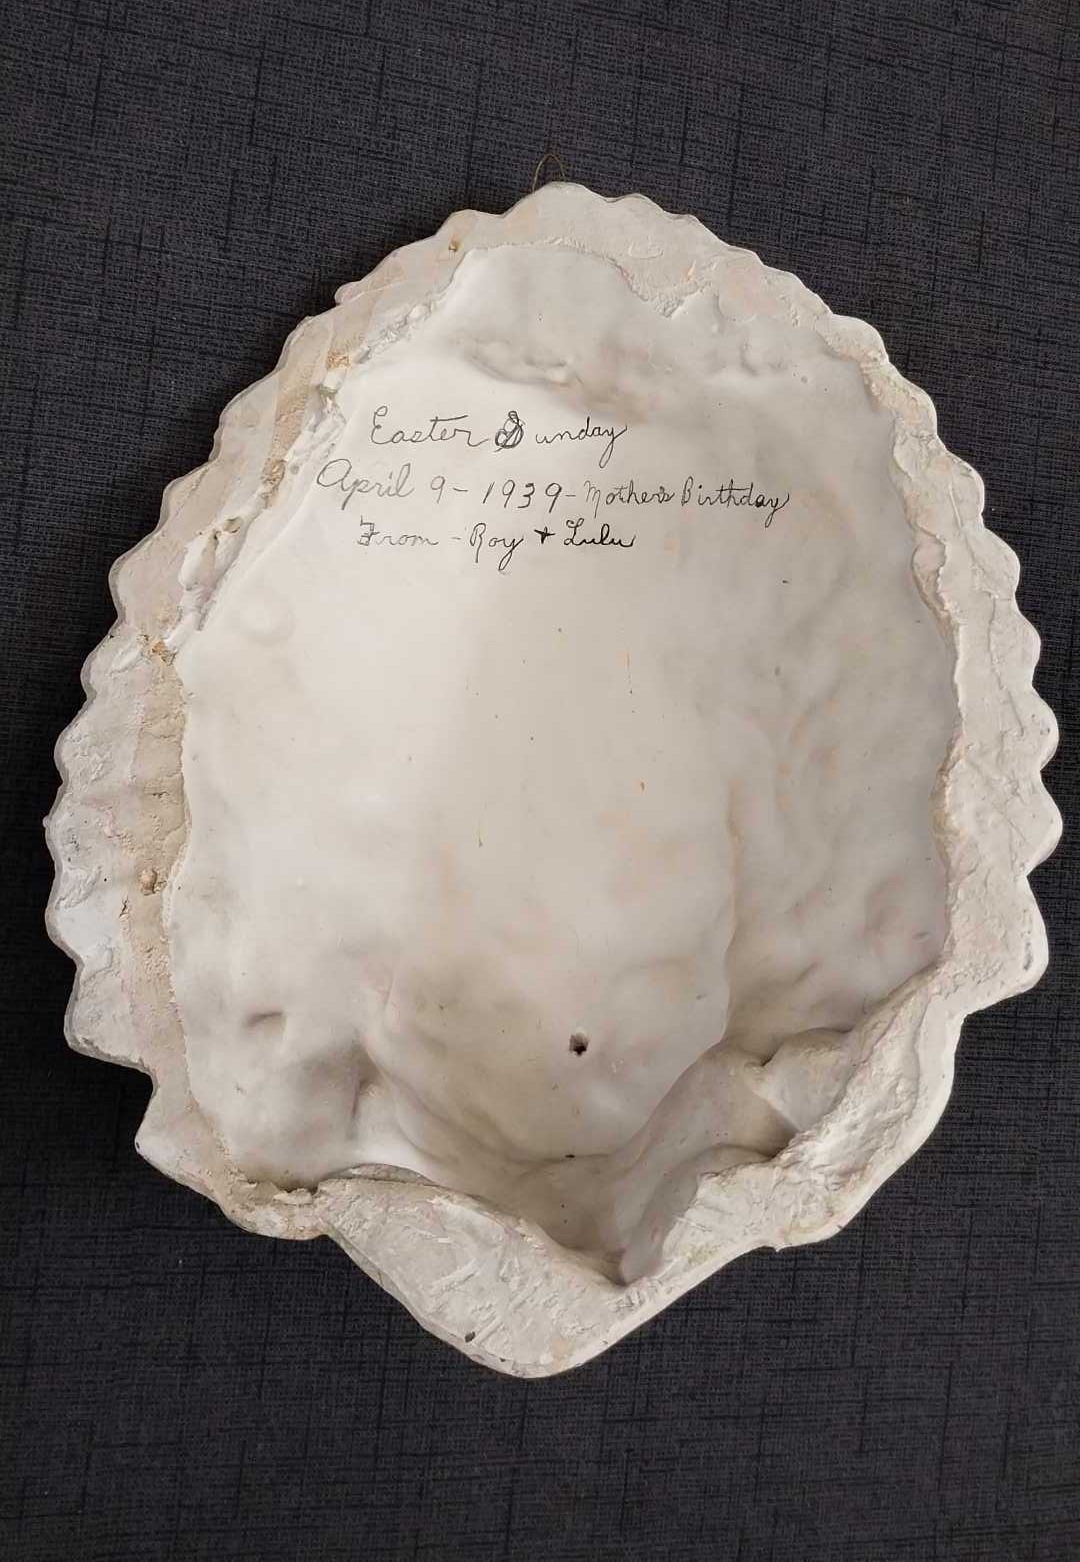 Easter Sunday
April 9 - 1939 - Mother's Birthday
From - Roy + Lulu